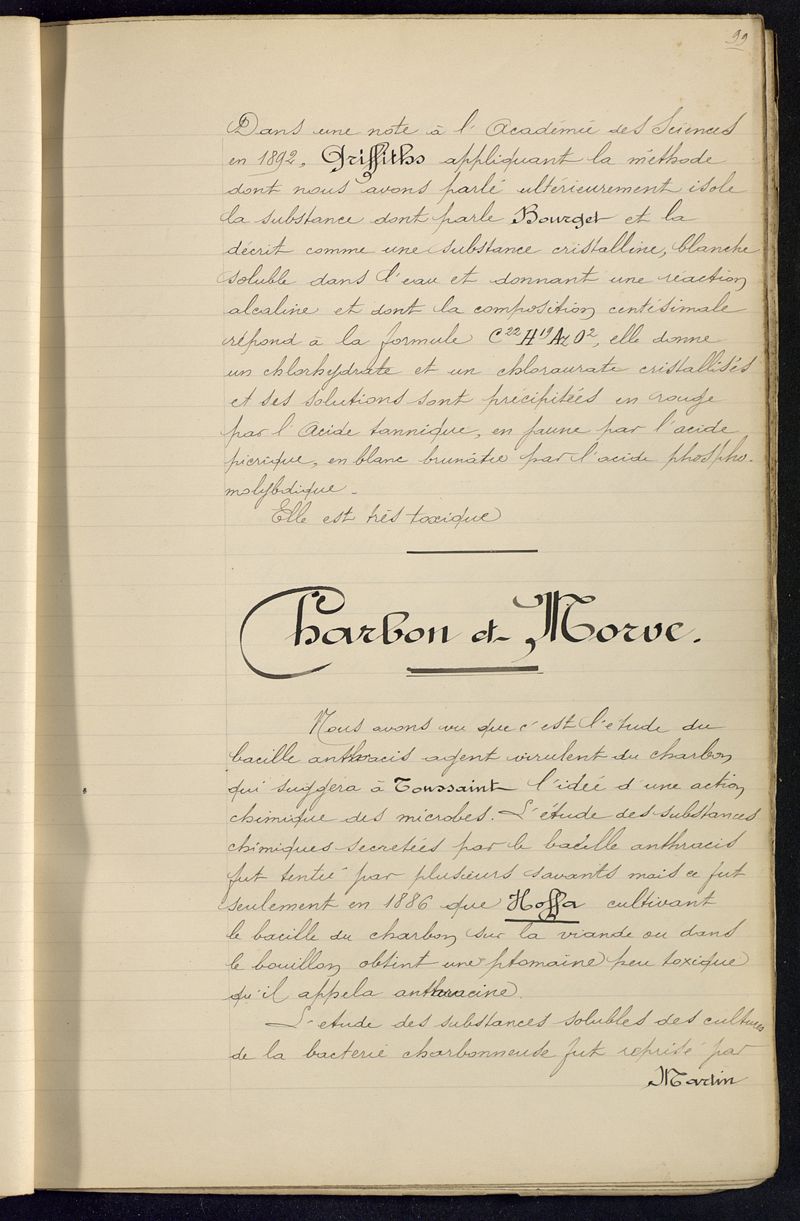 99
Dans une note à l'Académie des Sciences
en 1892, Griffiths appliquant la méthode
dont nous avons parlé ultérieurement isole
la substance dont parle Bourget et la
décrit comme une substance cristalline, blanche
soluble dans l'eau et donnant une réaction
alcaline et dont la composition centésimale
répond à la formule C²²H¹⁹AzO², elle donne
un chlorhydrate et un chloraurate cristallisés
et ses solutions sont précipitées en rouge
par l'Acide tannique, en jaune par l'acide
picrique, en blanc brunâtre par l'acide phospho-
molybdique.
Elle est très toxique
Charbon et Morve.
Nous avons vu que c'est l'étude du
bacille anthracis agent virulent du charbon
qui suggera à Toussaint l'idée d'une action
chimique des microbes. L'étude des substances
chimiques secretées par le bacille anthracis
fut tentée par plusieurs savants mais ce fut
seulement en 1886 que Hoffa cultivant
le bacille du charbon sur la viande ou dans
le bouillon obtint une ptomaïne peu toxique
qu'il appela anthracine.
L'etude des substances solubles des cultures
de la bacterie charbonneuse fut reprise par
Martin